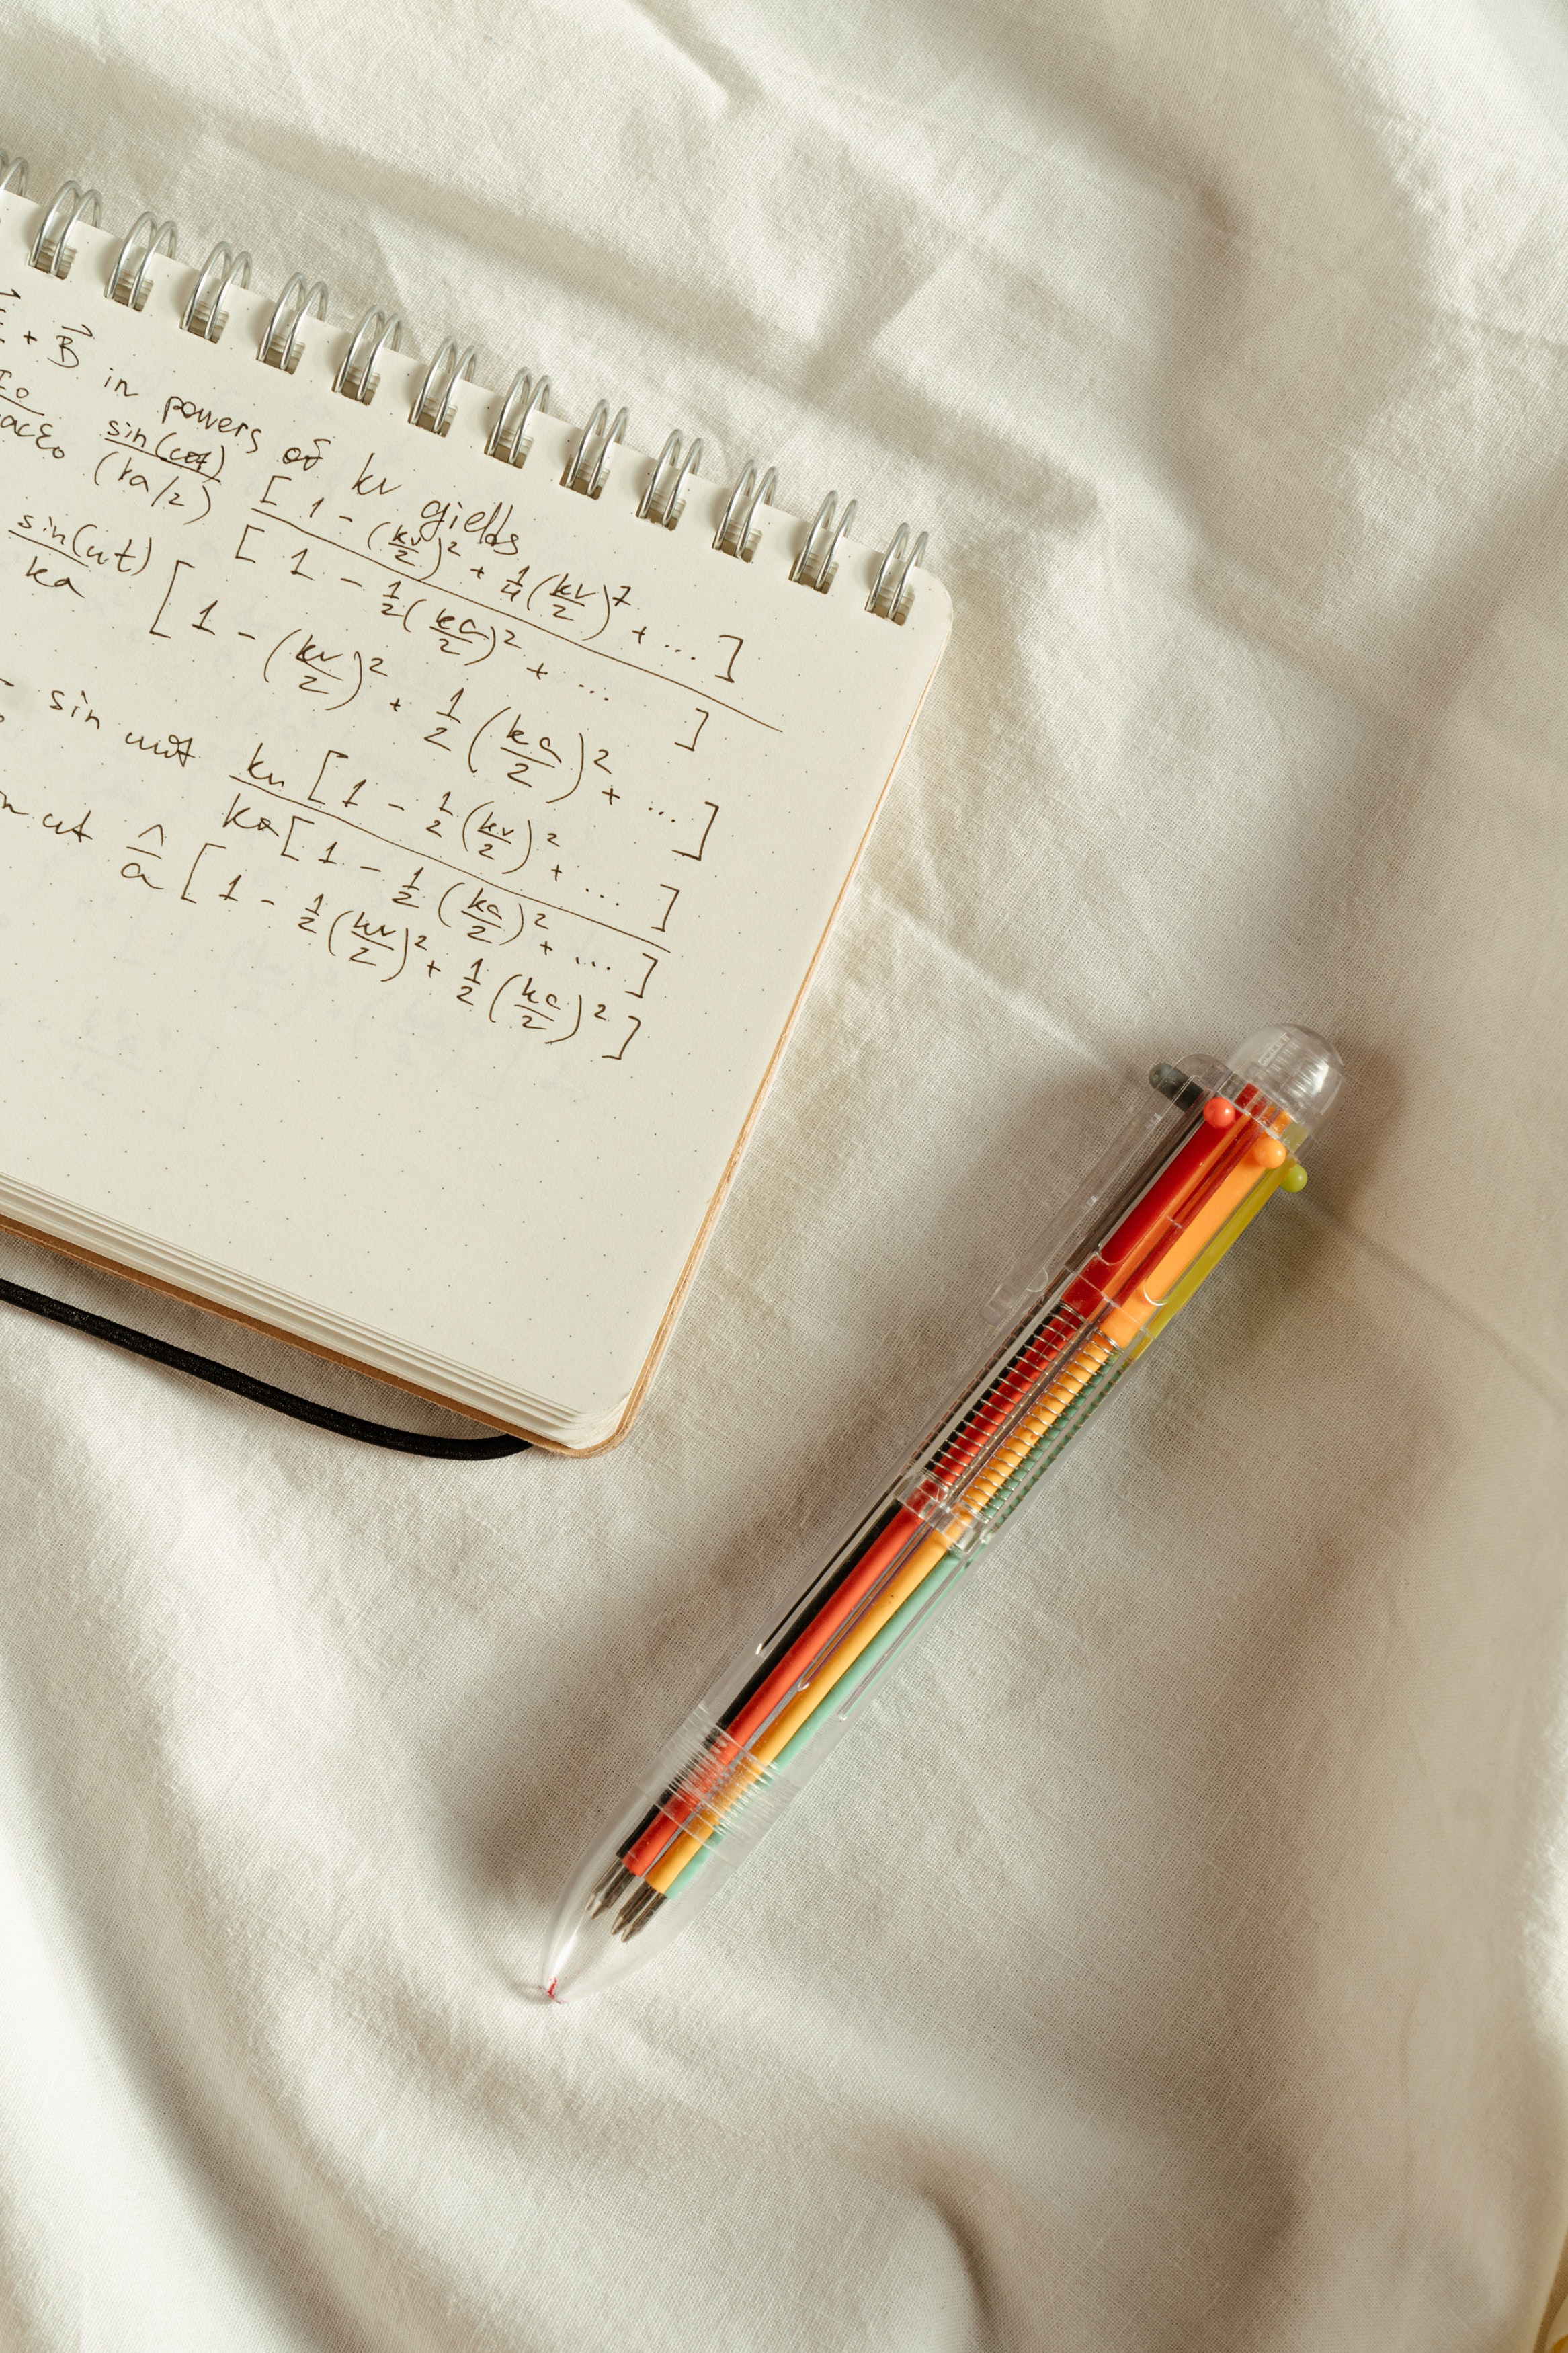 + B⃗ in powers of kr yields
sin(ωt) / (ka/2) [1 - (kr/2)² + 1/4(kr/2)⁷ + ...] / [1 - 1/2(ka/2)² + ...]
sin(ωt) / ka [1 - (kr/2)² + 1/2(ka/2)² + ...]
sin ωt kr[1 - 1/2(kr/2)² + ...] / ka[1 - 1/2(ka/2)² + ...]
ωt a [1 - 1/2(kr/2)² + 1/2(ka/2)²]